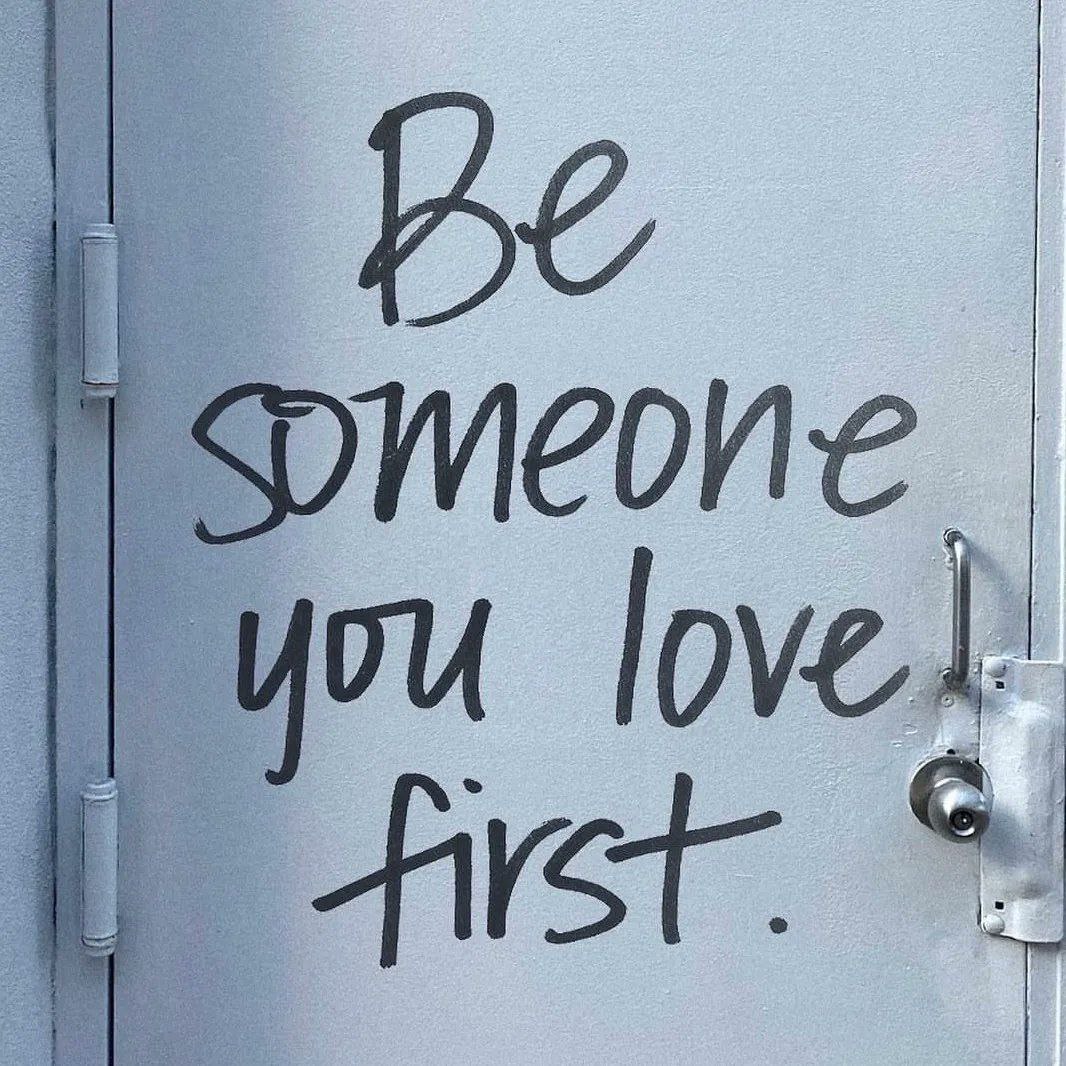 Be
someone
you love
first.